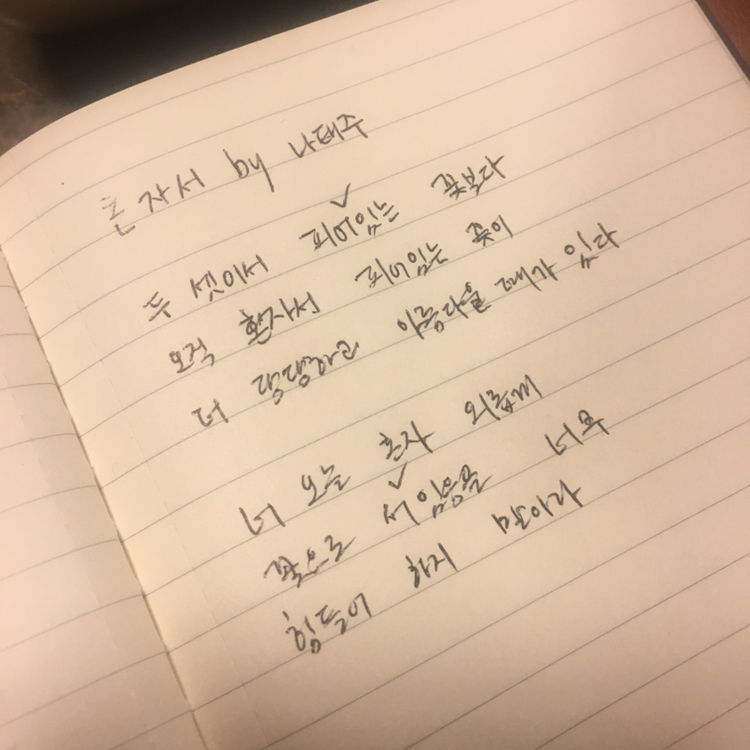 혼자서 by 나태주
두 셋이서 피어있는 꽃보다
오직 혼자서 피어있는 꽃이
더 당당하고 아름다울 때가 있다
너 오늘 혼자 외롭게
꽃으로 서있음을 너무
힘들어 하지 말아라